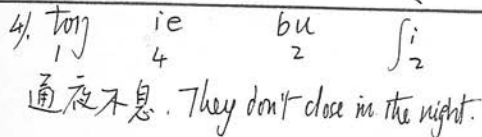 4). toŋ ie bu ʃi
1 4 2 2
通夜不息. They don't close in the night.